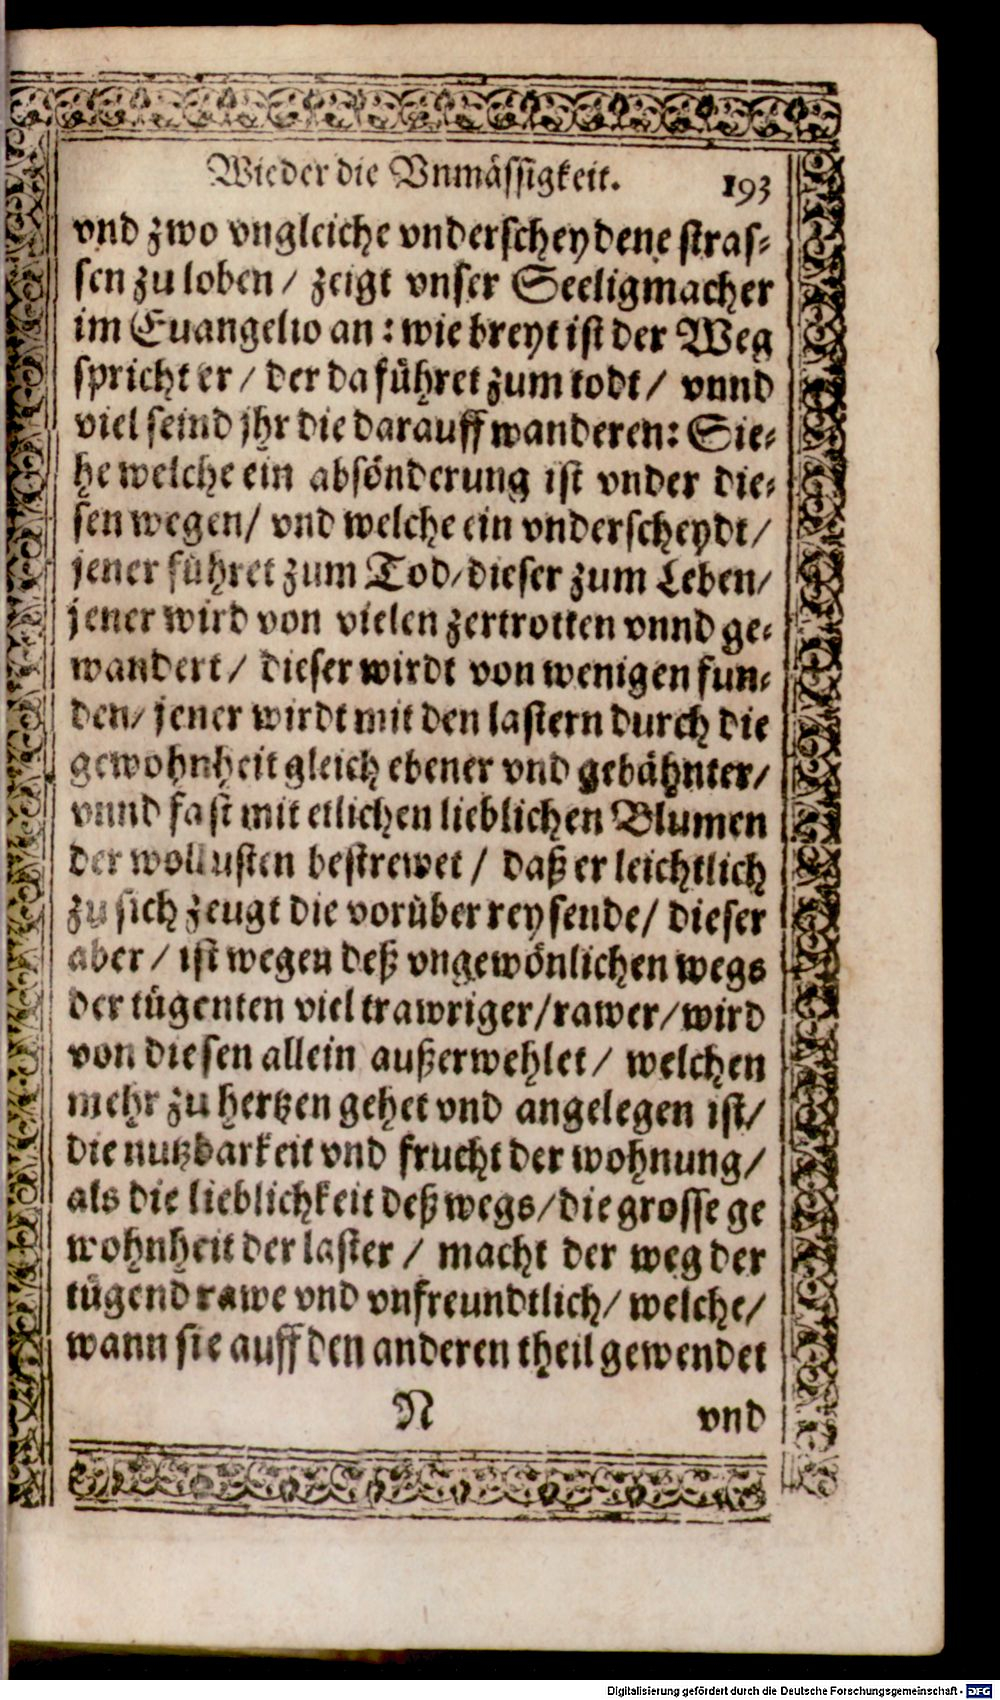 Wieder die Vnmässigkeit. 193
vnd zwo vngleiche vnderscheydene stras-
sen zu loben / zeigt vnser Seeligmacher
im Euangelio an : wie breyt ist der Weg
spricht er / der da führet zum todt / vnnd
viel seind jhr die darauff wanderen: Sie-
he welche ein absönderung ist vnder die-
sen wegen/ vnd welche ein vnderscheydt/
jener führet zum Tod/dieser zum Leben/
jener wird von vielen zertrotten vnnd ge-
wandert / dieser wirdt von wenigen fun-
den/ jener wirdt mit den lastern durch die
gewohnheit gleich ebener vnd gebähnter/
vnnd fast mit etlichen lieblichen Blumen
der wollusten bestrewet / daß er leichtlich
zu sich zeugt die vorüber reysende/ dieser
aber / ist wegen deß vngewönlichen wegs
der tügenten viel trawriger/rawer/wird
von diesen allein außerwehlet / welchen
mehr zu hertzen gehet vnd angelegen ist/
die nutzbarkeit vnd frucht der wohnung/
als die lieblichkeit deß wegs/die grosse ge
wohnheit der laster / macht der weg der
tügend rawe vnd vnfreundtlich/ welche/
wann sie auff den anderen theil gewendet
N vnd
Digitalisierung gefördert durch die Deutsche Forschungsgemeinschaft - DFG